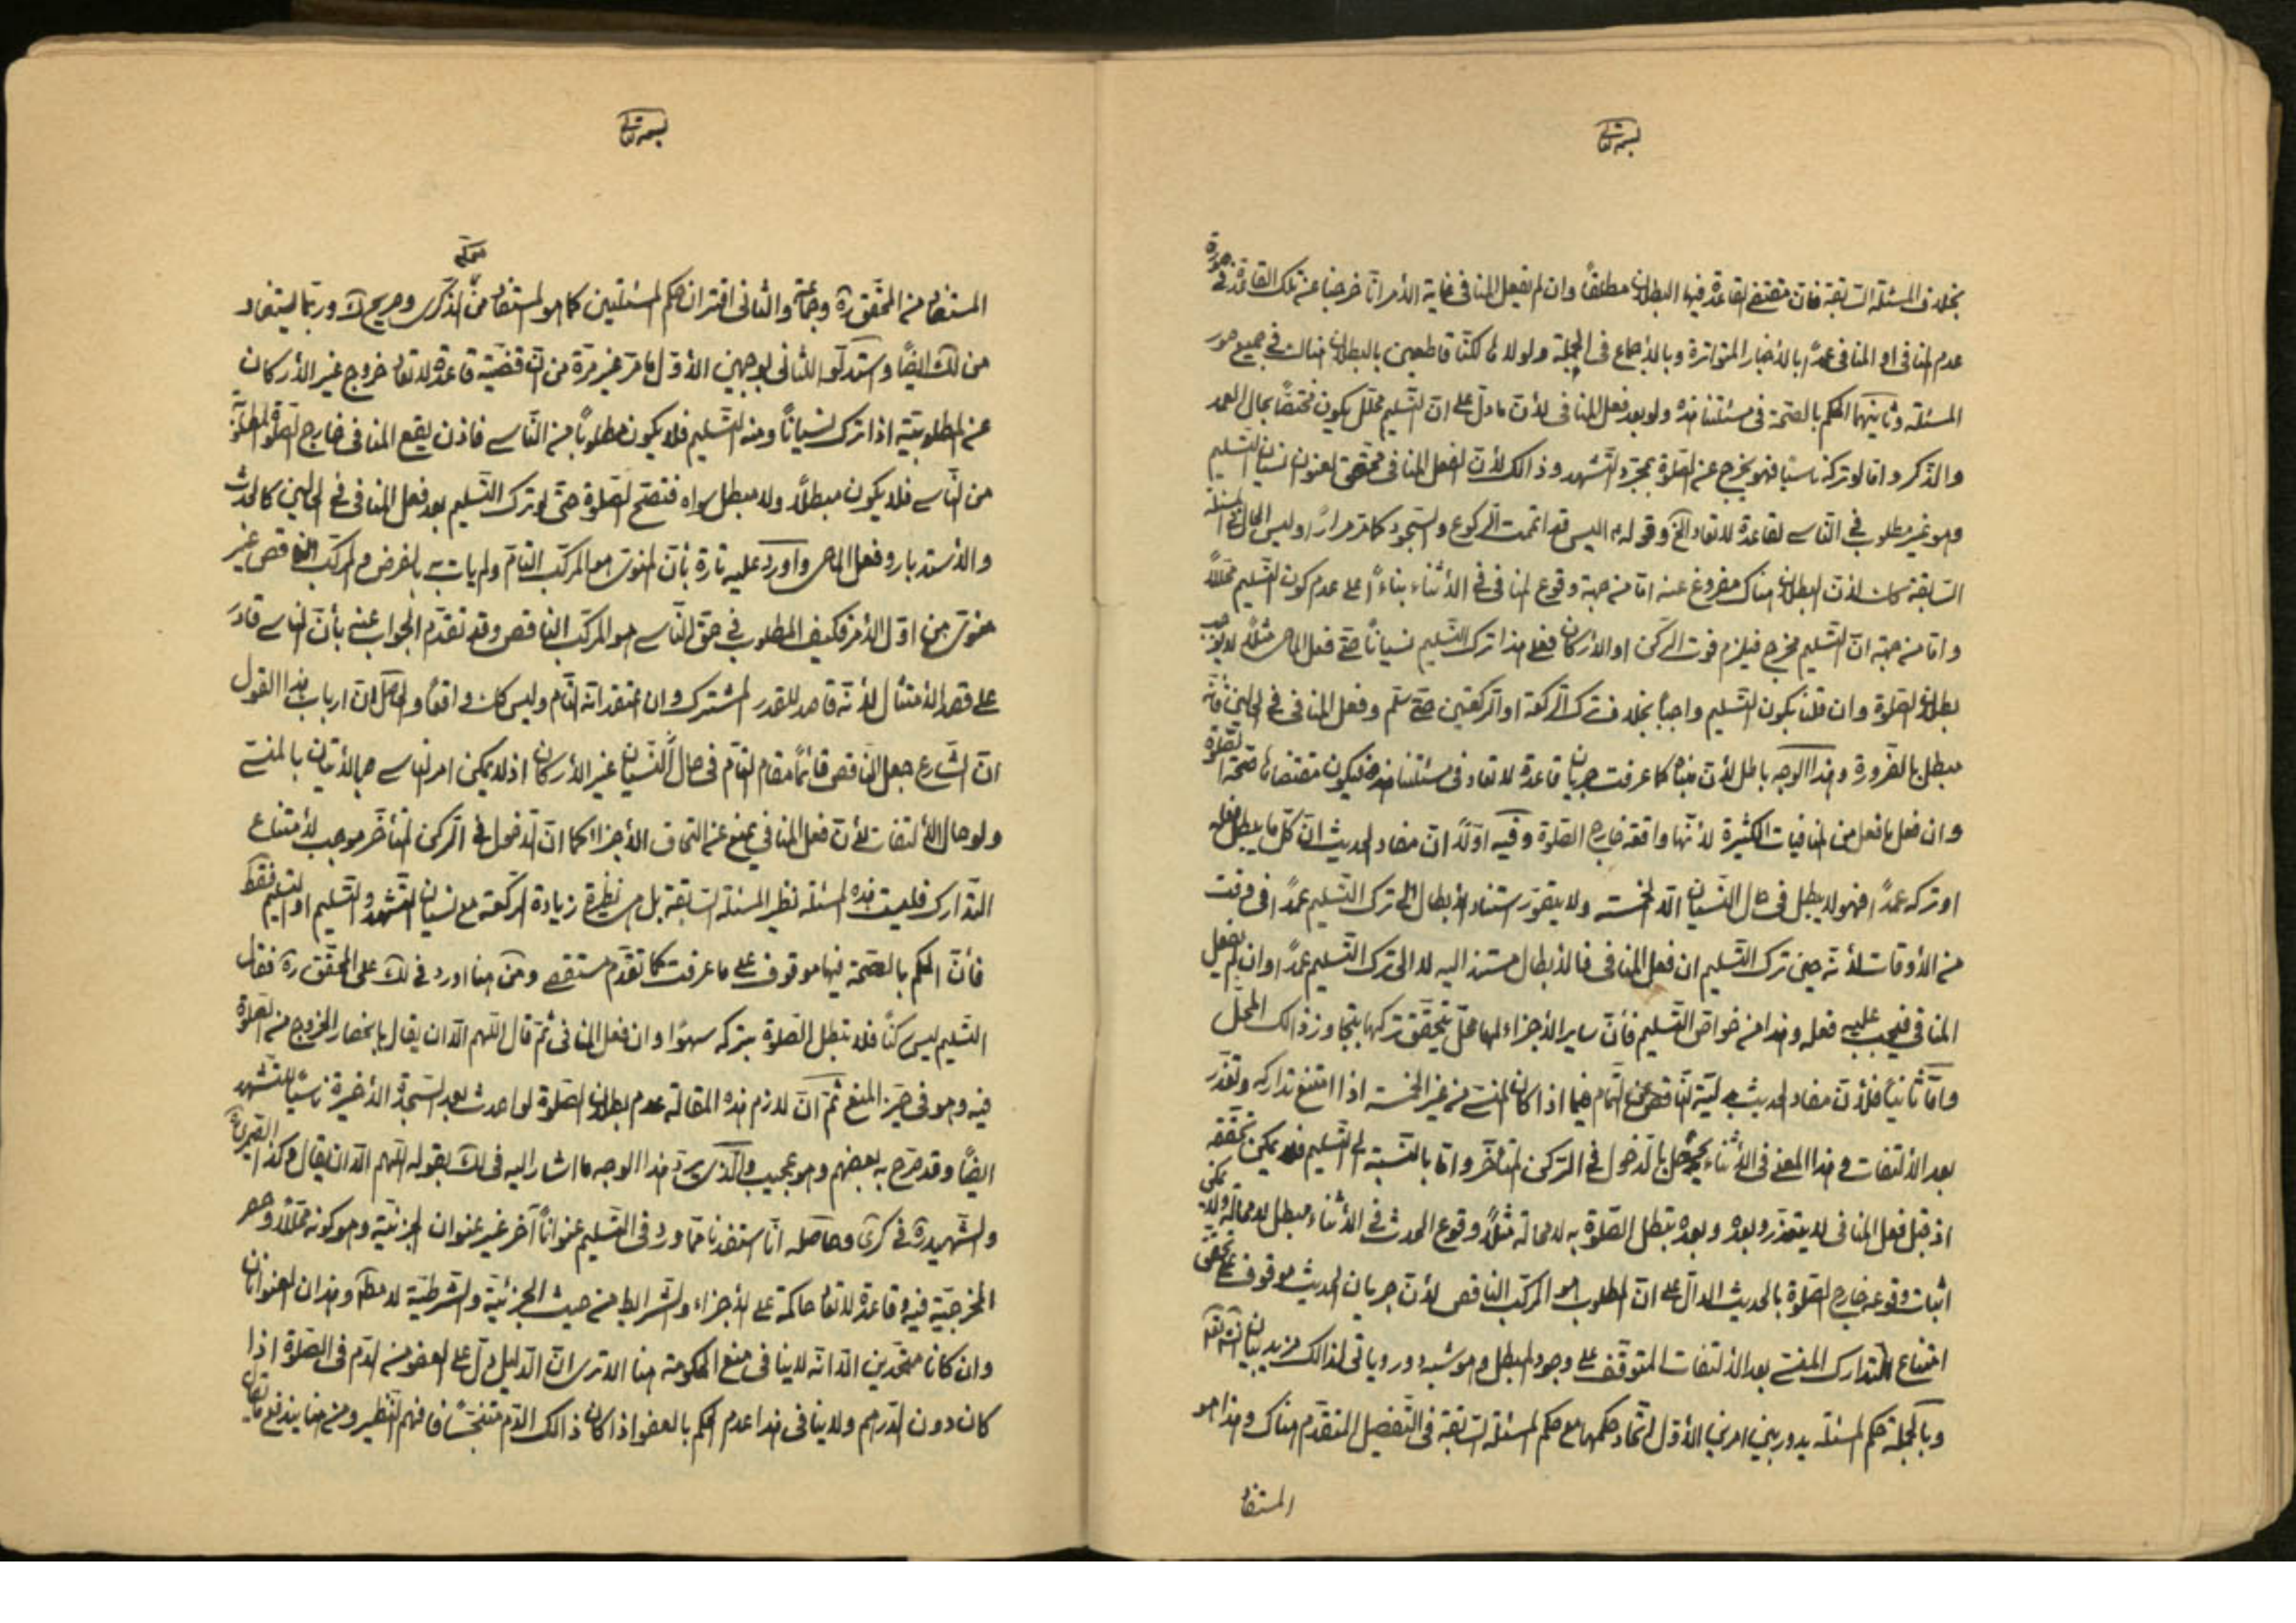 بسمه تعالی
بخلاف المسئلة السابقة فان مقتضى القاعدة فيها البطلان مطلقاً وان لم يفعل المنافى غاية الأمر انا خرجنا عن تلك القاعدة فى صورة
عدم المنافى او المنافى عمداً بالأخبار المتواترة وبالأجماع فى الجملة ولولا لكنّا قاطعين بالبطلان هناك فى جميع صور
المسئلة وثانيهما الحكم بالصحة فى مسئلتنا هذه ولو بعد فعل المنافى لأن ما دلّ على انّ التسليم محلّل يكون مختصاً بحال العمد
والذكر وامّا لو تركه ناسياً فهو يخرج عن الصلوة بمجرد التشهد وذالك لأن لفعل المنافى لعنوان نسيان التسليم
وهو غير مطلوب فى الناسى لقاعدة لا تعاد الخ وقوله اليس قد اتممت الركوع والسجود كما مر مراراً وليس الحال فى المسئلة
السابقة كان لأن البطلان هناك مفروغ عنه امّا من جهة وقوع المنافى فى الأثناء بناءً على عدم كون التسليم محللاً
وامّا من جهة انّ التسليم مخرج فيلزم فوت الركن او الأركان فعلى هذا ترك التسليم نسياناً حتى فعل الماحى مثلاً لا يوجب
بطلان الصلوة وان قلنا بكون التسليم واجباً بخلاف ترك الركعة او الركعتين حتى سلّم وفعل المنافى فى الحالين فانّه
مبطل بالضرورة وهذا الوجه باطل لأن مبناه كما عرفت جريان قاعدة لا تعاد فى مسئلتنا هذه فيكون مقتضاها صحة الصلوة
وان فعل ما فعل من المنافيات الكثيرة لأنّها واقعة خارج الصلوة وفيه اوّلاً انّ مفاد الحديث انّ كلّ ما يبطل فعله
او تركه عمداً فهو لا يبطل فى حال النسيان الّا الخمسة ولا يتصوّر استناد الأبطال الى ترك التسليم عمداً فى وقت
من الأوقات لأنّه حين ترك التسليم ان فعل المنافى فالأبطال مستند اليه لا الى ترك التسليم عمداً وان لم يفعل
المنافى فيجب عليه فعله وهذا من خواص التسليم فأنّ ساير الأجزاء لها محل يتحقق تركها بتجاوز ذالك المحلّ
وامّا ثانياً فلأنّ مفاد الحديث بدليّة الناقص عن التمام فيما اذا كان المنسى من غير الخمسة اذا امتنع تداركه وتعذّر
بعد الألتفات وهذا المعنى فى الأثناء يحصل بالدخول فى الركن المتأخر وامّا بالنسبة الى التسليم فلا يمكن تحققه
اذ قبل فعل المنافى لا يتعذّر وبعده وبعده تبطل الصلوة به لا محالة مثلاً وقوع الحدث فى الأثناء مبطل لا محالة ولا يمكن
اثبات وقوعه خارج الصلوة بالحديث الدالّ على انّ المطلوب هو المركّب الناقص لأنّ جريان الحديث موقوف على تحقق
امتناع التدارك المنسى بعد الألتفات المتوقف على وجود المبطل وهو شبه دور ويأتى لذالك مزيد بيان انشاء الله
وبالجملة حكم المسئلة يدور بين امرين الأوّل اتحاد حكمها مع حكم المسئلة السابقة فى التفصيل المتقدم هناك وهذا هو
المستفاد
بسمه تعالی
المستفاد من المحقق ره وجماعة والثانى افتراق حكم المسئلتين كما هو المستفاد من الذكرى وصريح ك وربّما يستفاد
من لك ايضاً واستدلّوا للثانى بوجهين الأوّل ما مرّ غير مرّة من انّ قضيّة قاعدة لا تعاد خروج غير الأركان
عن المطلوبيّة اذا ترك نسياناً ومنه التسليم فلا يكون مطلوباً من الناسى فاذن يقع المنافى خارج الصلوة المطلوبة
من الناسى فلا يكون مبطلاً ولا مبطل سواه فتصحّ الصلوة حتى لو ترك التسليم بعد فعل المنافى فى الحالين كالحدث
والأستدبار وفعل الماحى واورد عليه تارة بأن المنوىّ هو المركب التام ولم يأت به بالفرض والمركب الناقص غير
منوىّ من اوّل الأمر فكيف المطلوب فى حق الناسى هو المركب الناقص وقد تقدّم الجواب عنه بأن الناسى قادر
على قصد الأمتثال لأنّه قاصد للقدر المشترك وان اعتقد انّه التام وليس كك واقعاً والحاصل انّ ارباب هذا القول
انّ الشارع جعل الناقص قائماً مقام التام فى حال النسيان غير الأركان اذ لا يمكن امر الناسى بالأتيان بالمنسى
ولو حال الألتفات لأن فعل المنافى يمنع عن التحاق الأجزاء كما انّ الدخول فى الركن المتأخّر موجب لأمتناع
التدارك فليست هذه المسئلة نظير المسئلة السابقة بل هى نظيرة زيادة الركعة مع نسيان التشهد والتسليم او التسليم فقط
فأنّ الحكم بالصحة فيها موقوف على ما عرفت كما تقدّم مستقصى ومن هنا اورد فى لك على المحقق ره فقال
التسليم ليس ركناً فلا تبطل الصلوة بتركه سهواً وان فعل المنافى ثم قال اللهم الّا ان يقال بانحصار الخروج من الصلوة
فيه وهو فى حيّز المنع ثمّ انّ لازم هذه المقالة عدم بطلان الصلوة لو احدث بعد السجدة الأخيرة ناسياً للتشهد
ايضاً وقد صرّح به بعضهم وهو عجيب والذى يردّ هذا الوجه ما اشار اليه فى لك بقوله اللهم الّا ان يقال وكذا
والشهيد ره فى كرى وحاصله انّا استفدنا ممّا ورد فى التسليم عنواناً آخر غير عنوان الجزئية وهو كونه محلّلاً وحصر
المخرجيّة فيه وقاعدة لا تعاد حاكمة على الأجزاء والشرائط من حيث الجزئيّة والشرطيّة لا مطلقا وهذان العنوانان
وان كانا متّحدين الّا انّه لا ينافى منع الحكومة هنا الا ترى انّ الدليل دلّ على العفو من الدّم فى الصلوة اذا
كان دون الدرهم ولا ينافى هذا عدم الحكم بالعفو اذا كان ذالك الدّم متنجّساً فافهم التنظير ومن هنا يندفع